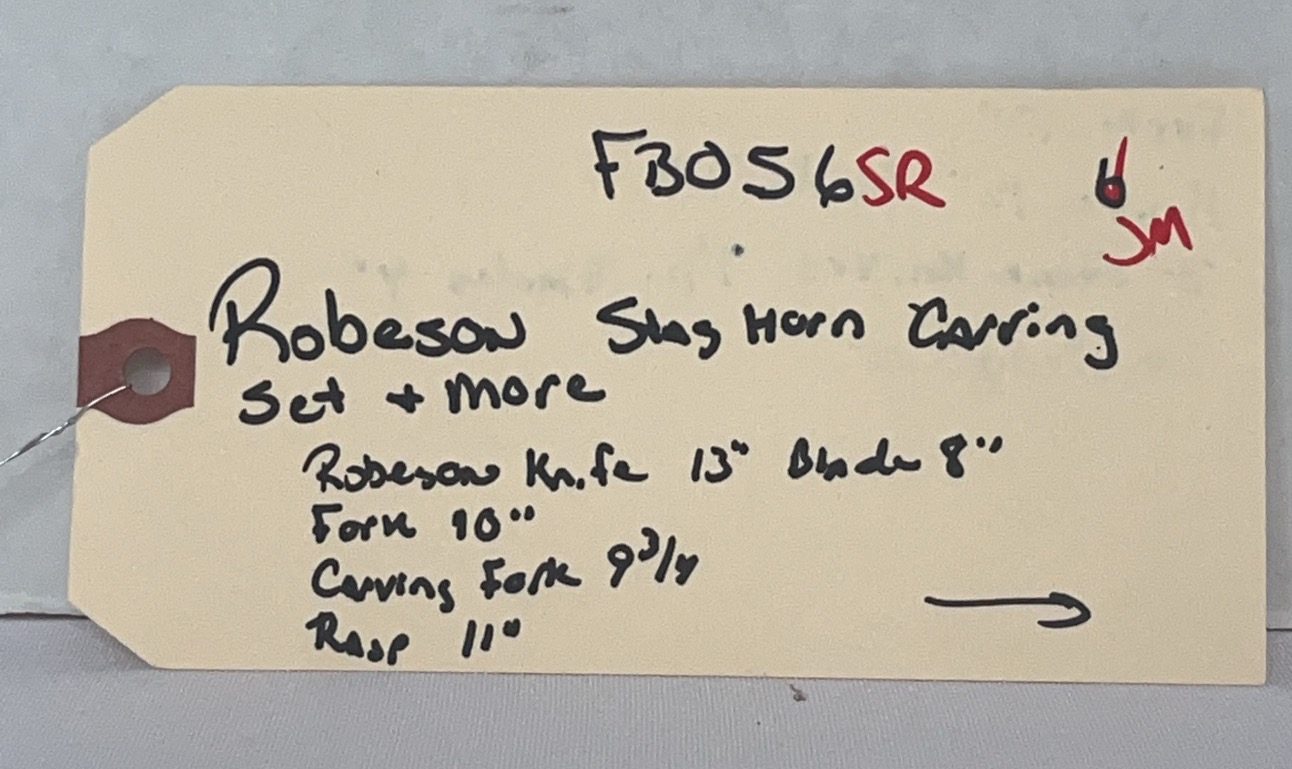 FB056SR 6
JM
Robeson Stag Horn Carving
Set + More
Robeson Knife 13" Blade 8"
Fork 10"
Carving Fork 9 3/4
Rasp 11"